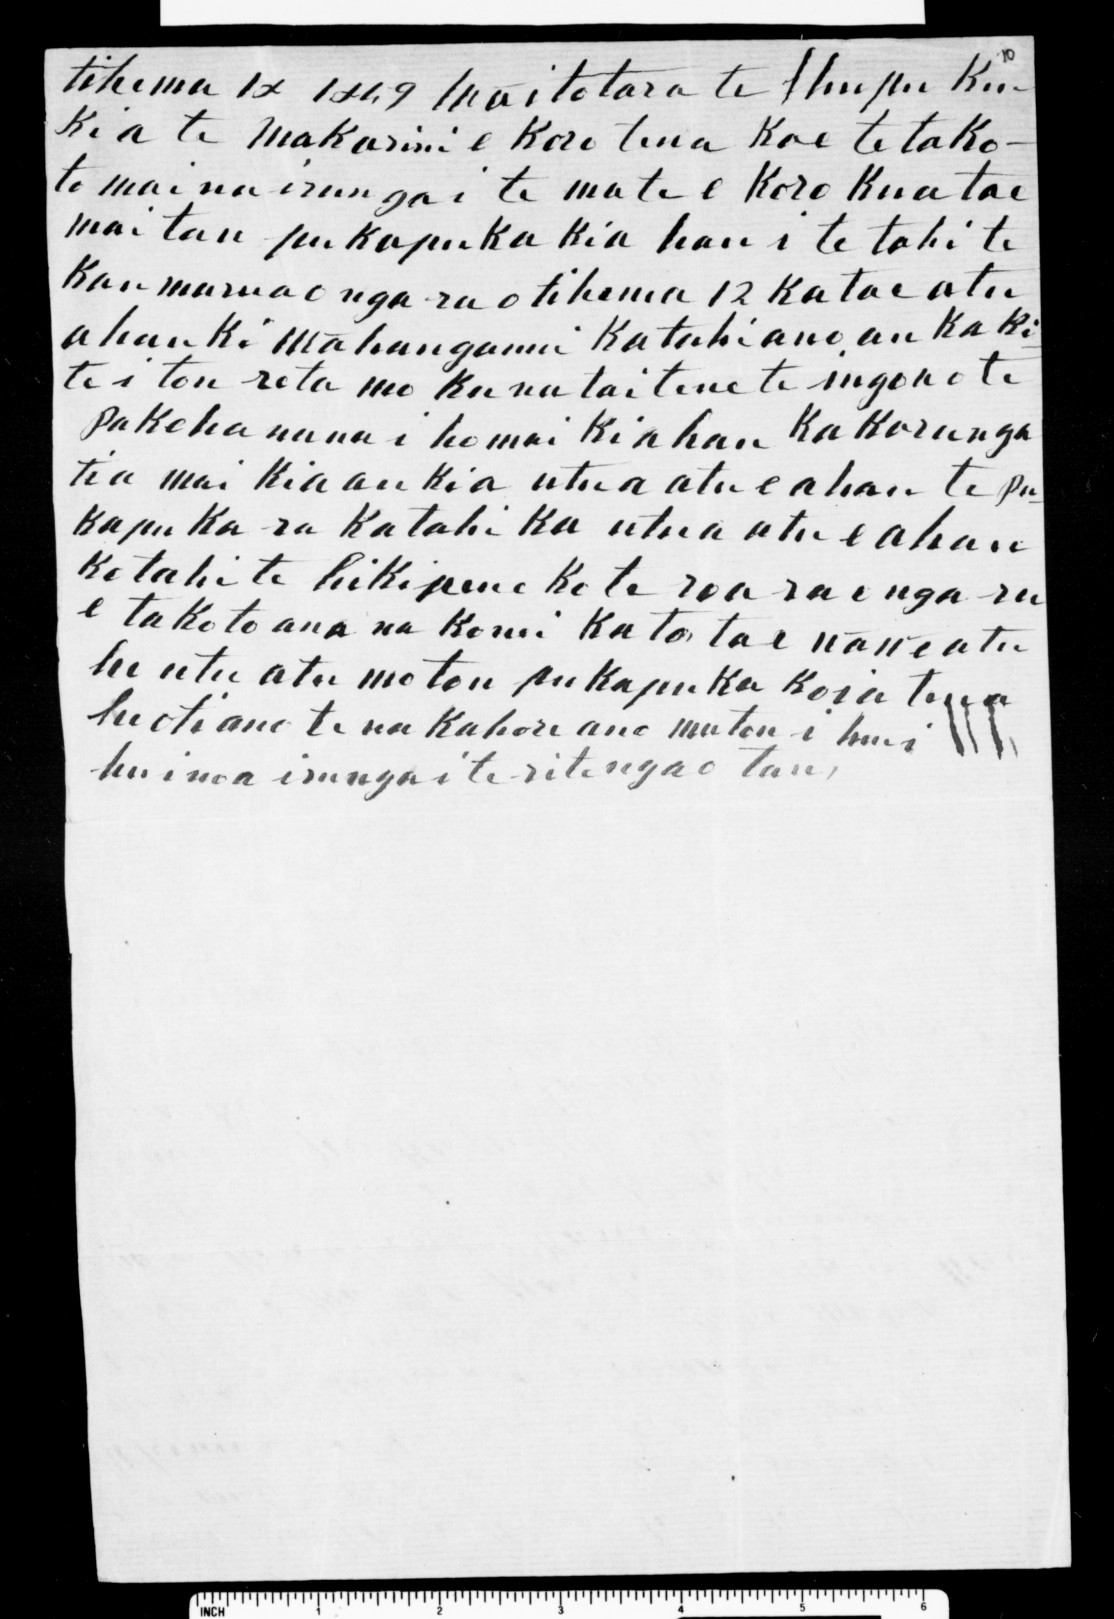 10
tihema 18 1849 Waitotara te
Kia te Makarini e Koro tena Koe te tako-
to mai na irunga i te mate e Koro Kua tae
mai tau pukapuka kia hau i te tahi te
Kau marua o nga ra o tihema 12 Katae atu
ahau Ki Wahanganui Katahi ano au Ka Ki
te i tou reta mo Ku na tai tene te ingoa o te
pakeha nana i homai Kiahau Ka Karunga
tia mai Kia au Kia utua atu e ahau te pu-
kapuka ra Katahi Ka utua atu e ahau
Kotahi te hikipene Ko te roa ra o nga ra
e takoto ana na Konei Ka tae atu
he utu atu mo tou pukapuka Koia tena
heoti ano te na Kahore ano matou i huei
hui noa irunga i te ritenga o tau,
INCH 1 2 3 4 5 6